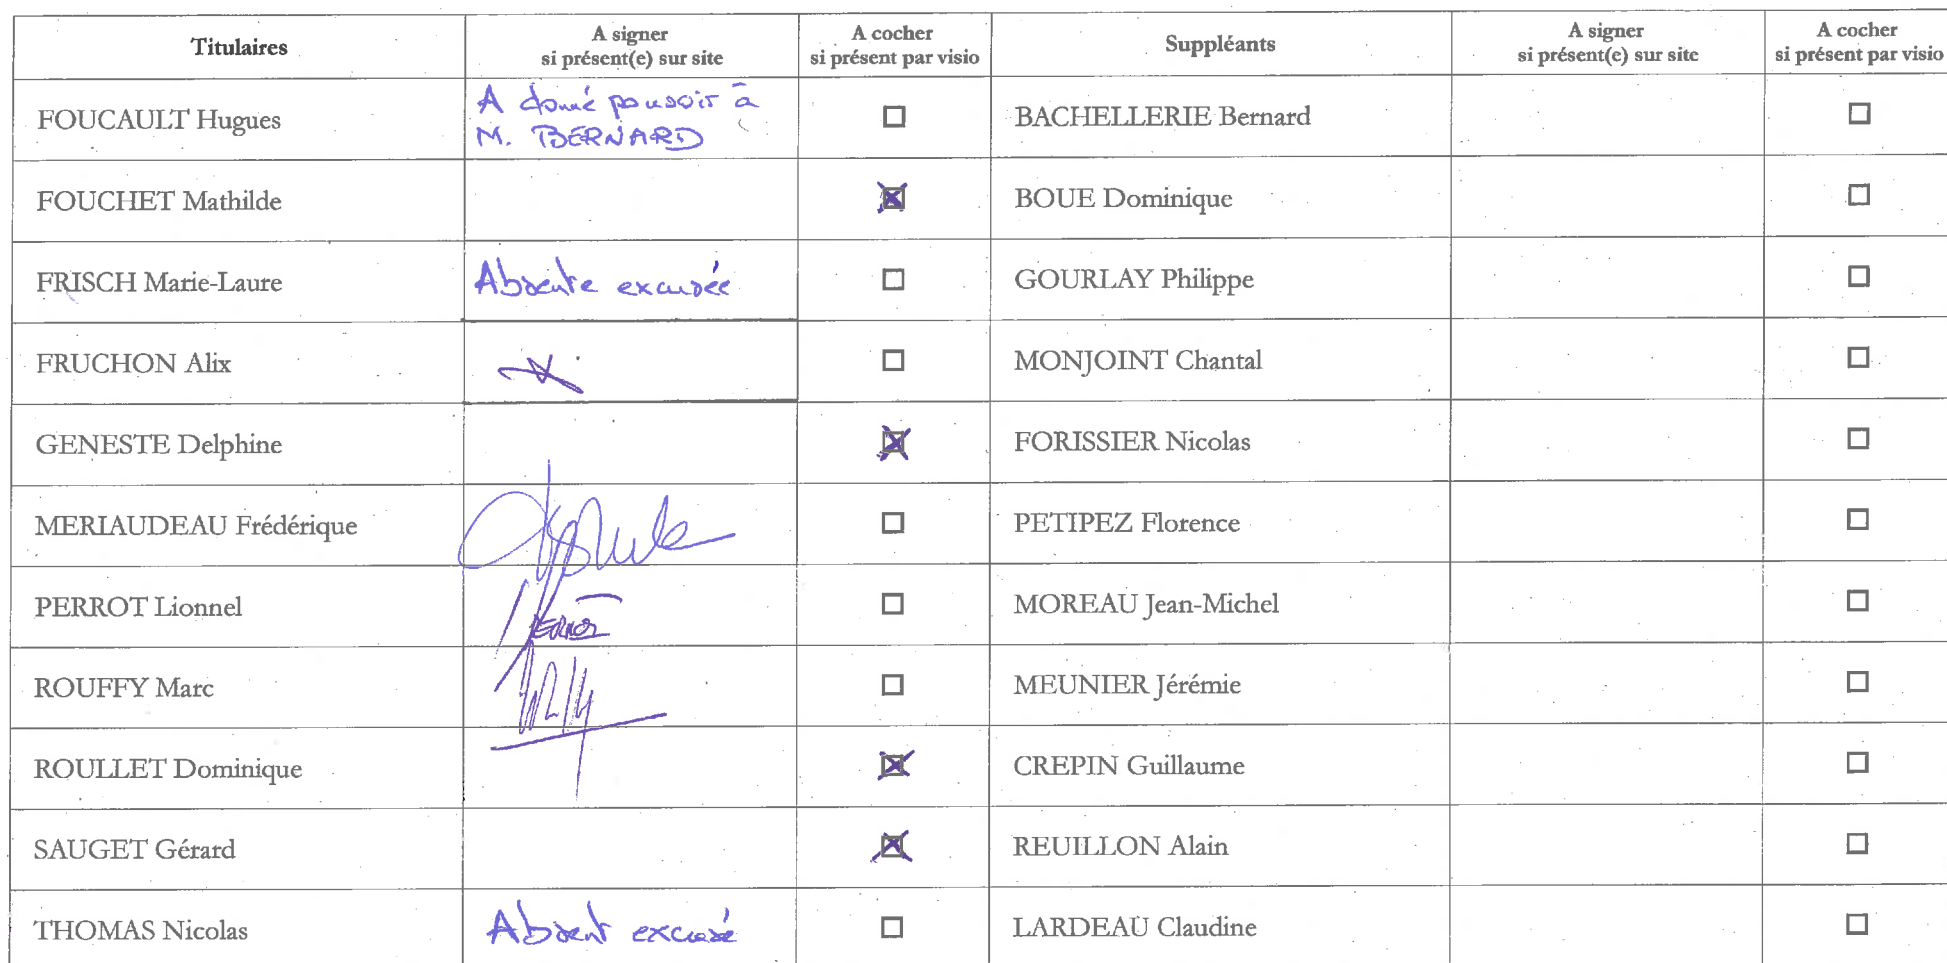 Titulaires
A signer
si présent(e) sur site
A cocher
si présent par visio
Suppléants
A signer
si présent(e) sur site
A cocher
si présent par visio
FOUCAULT Hugues
A donné pouvoir à
M. BERNARD
BACHELLERIE Bernard
FOUCHET Mathilde
BOUE Dominique
FRISCH Marie-Laure
Absente excusée
GOURLAY Philippe
FRUCHON Alix
MONJOINT Chantal
GENESTE Delphine
FORISSIER Nicolas
MERIAUDEAU Frédérique
PETIPEZ Florence
PERROT Lionnel
MOREAU Jean-Michel
ROUFFY Marc
MEUNIER Jérémie
ROULLET Dominique
CREPIN Guillaume
SAUGET Gérard
REUILLON Alain
THOMAS Nicolas
Absent excusé
LARDEAU Claudine